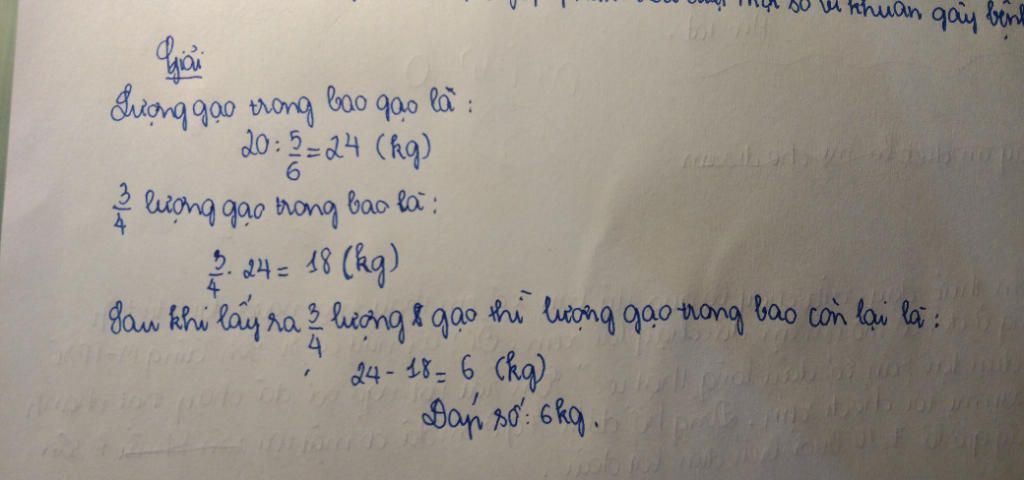 số vi khuẩn gây bệnh
Giải
Lượng gạo trong bao gạo là :
20 : 5/6 = 24 (kg)
3/4 lượng gạo trong bao là :
3/4 . 24 = 18 (kg)
Sau khi lấy ra 3/4 lượng gạo thì lượng gạo trong bao còn lại là :
24 - 18 = 6 (kg)
Đáp số : 6kg .